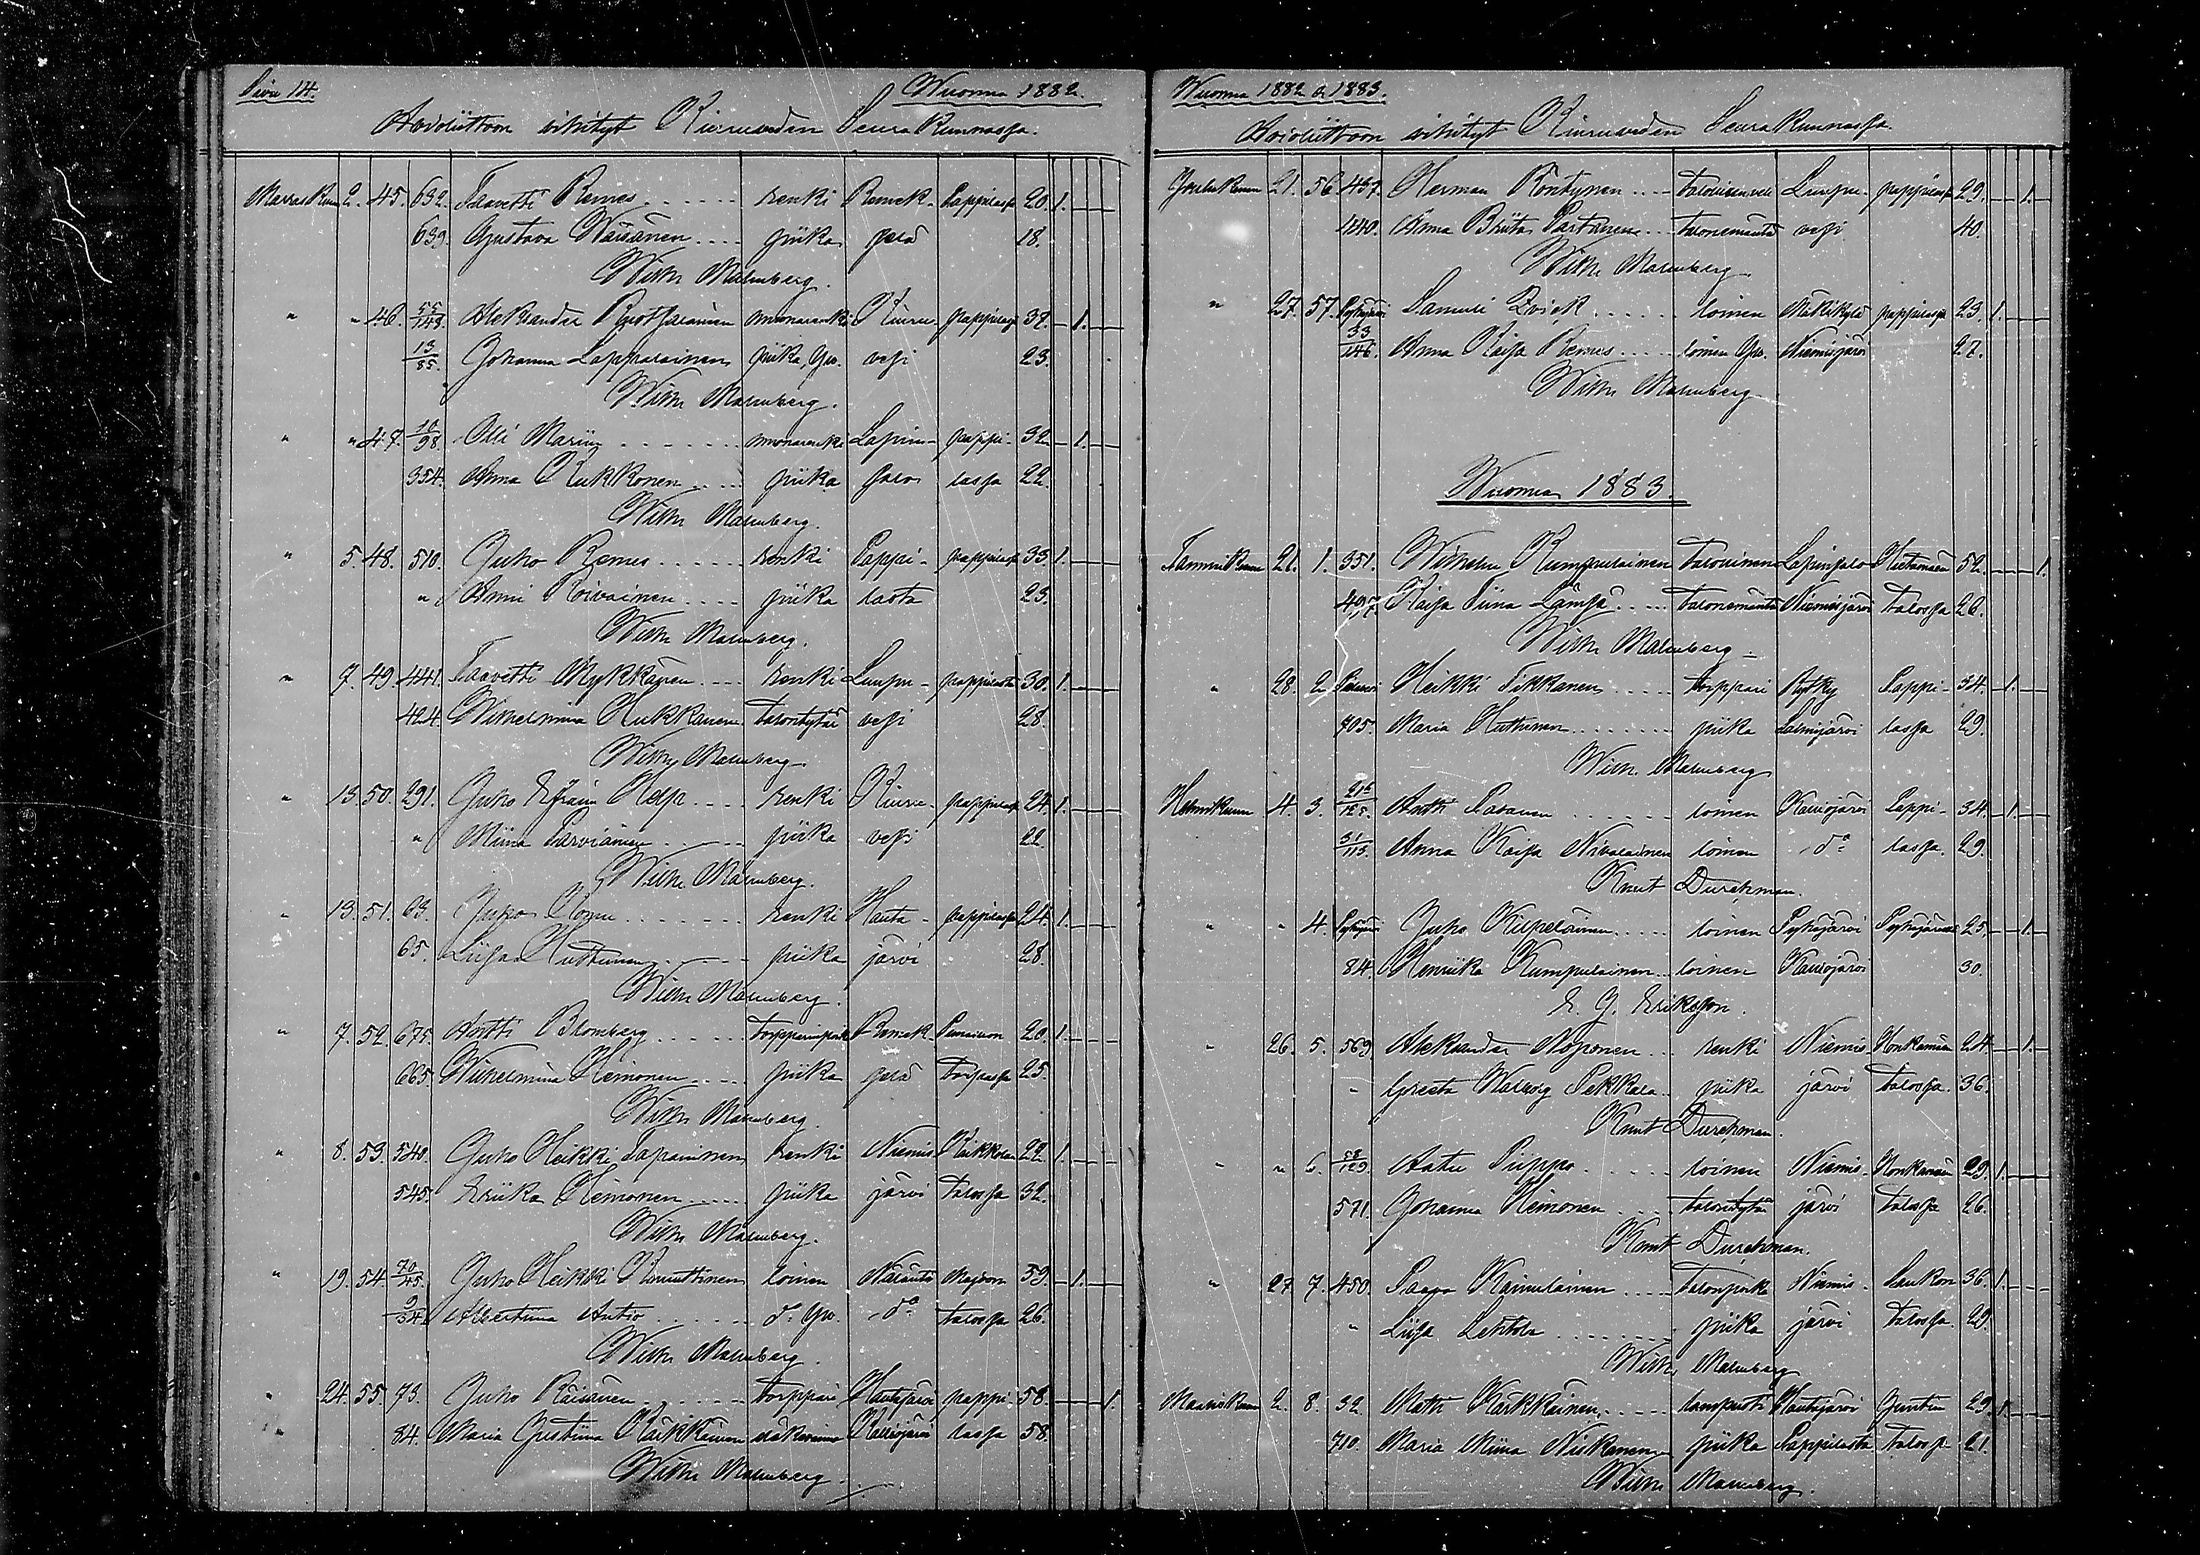 Sivu 14. Wuonna 1882.
Avioliittoon vihityt Kiuruveden Seurakunnassa.
Marraskuun 2. 45. 632. Taavetti Remes renki Remek- Pappilassa 20. 1.
639. Gustava Räisänen piika 18.
Wilh. Malmberg.
" " 46. 55/143. Aleksander Kiuru- pappilassa 32. 1.
13/85. Johanna Lappalainen piika, Ysö. vesi 23.
Wilh. Malmberg.
" " 47. 10/98. Olli muonarenki Lapin- pappi- 32. 1.
354. Anna Kukkonen piika salo lassa 22.
Wilh. Malmberg.
" 5. 48. 510. Juho Remes renki Pappi- pappilassa 33. 1.
" Anni Koivoinen piika lasta 23.
Wilh. Malmberg.
" 7. 49. 441. Taavetti Mykkänen renki Luupu- pappilasta 30. 1.
424. Wilhelmina Hukkanen talontytär vesi 28.
Wilh. Malmberg
" 13. 50. 291. Juho Efraim renki Kiuru- pappilassa 24. 1.
" Miina Parviainen piika vesi 22.
Wilh. Malmberg.
" 13. 51. 63. Juho renki Hauta- pappilassa 24. 1.
65. Liisa Huttunen piika järvi 28.
Wilh. Malmberg.
" 7. 52. 675. Antti Blomberg torpparinpoika Remek- 20. 1.
665. Wilhelmina Heimonen piika torpassa 25.
Wilh. Malmberg.
" 8. 53. 540. Juho Heikki Tapaninen renki Niemis- Keikkolan 22. 1.
545. Eriika Heimonen piika järvi talossa 32.
Wilh. Malmberg.
" 19. 54. 70/45. Juho Heikki loinen Näläntö 59. 1.
9/34. Albertiina Autio do do talossa 26.
Wilh. Malmberg.
" 24. 55. 73. Juho Räisänen torppari Hautajärvi pappi- 58. 1.
84. Maria Gustiina Kärkkäinen Kalliojärvi lassa 58.
Wilh. Malmberg.
Wuonna 1882 & 1883.
Avioliittoon vihityt Kiuruveden Seurakunnassa.
Joulukuun 21. 56. 437. Herman Röntynen Luupu- pappilassa 29. 1.
440. Anna Briita Partanen talonemäntä vesi 40.
Wilh. Malmberg.
" 27. 57. Pyhäjärvi Samuli loinen Mäkikylä pappilassa 23. 1.
33/146. Anna Kaisa Remes loinen Niemisjärvi 27.
Wilh. Malmberg.
Wuonna 1883.
Tammikuun 21. 1. 351. Wilhelm Kumpulainen talollinen Lapinsalo 52. 1.
497. Kaisa Tiina Lämsä talonemäntä Niemisjärvi talossa 26.
Wilh. Malmberg.
" 28. 2. Heikki Tikkanen torppari Rytky Pappi- 34. 1.
705. Maria Huttunen piika Salmijärvi lassa 29.
Wilh. Malmberg
Helmikuun 4. 3. Antti Sasanen loinen Kalliojärvi Pappi- 34. 1.
31/115. Anna Kaisa Nivalainen loinen do lassa. 29.
Knut Durchman.
" " 4. Pyhäjärvi Juho Kilpeläinen loinen Pyhäjärvi 25. 1.
84. Henriika Kumpulainen loinen Kalliojärvi 30.
E. J. Eriksson.
" 26. 5. 569. Aleksander Noponen renki Niemis- Honkamäen 24. 1.
" Greeta Walborg Pekkala piika järvi talossa. 36.
Knut Durchman.
" " 6. 58/129. Aatu Piippo loinen Niemis- Honkamäen 29. 1.
571. Johanna Heimonen talontytär järvi talossa 26.
Knut Durchman.
" 27. 7. 450. Paavo Kainulainen talonpoika Niemis- Laukon 36. 1.
" Liisa Lehtola piika järvi talossa. 29.
Wilh. Malmberg
Maaliskuun 2. 8. 32. Matti Kärkkäinen lampuoti Hautajärvi 29. 1.
710. Maria Miina Niskanen piika Pappilasta talossa 21.
Wilh. Malmberg.